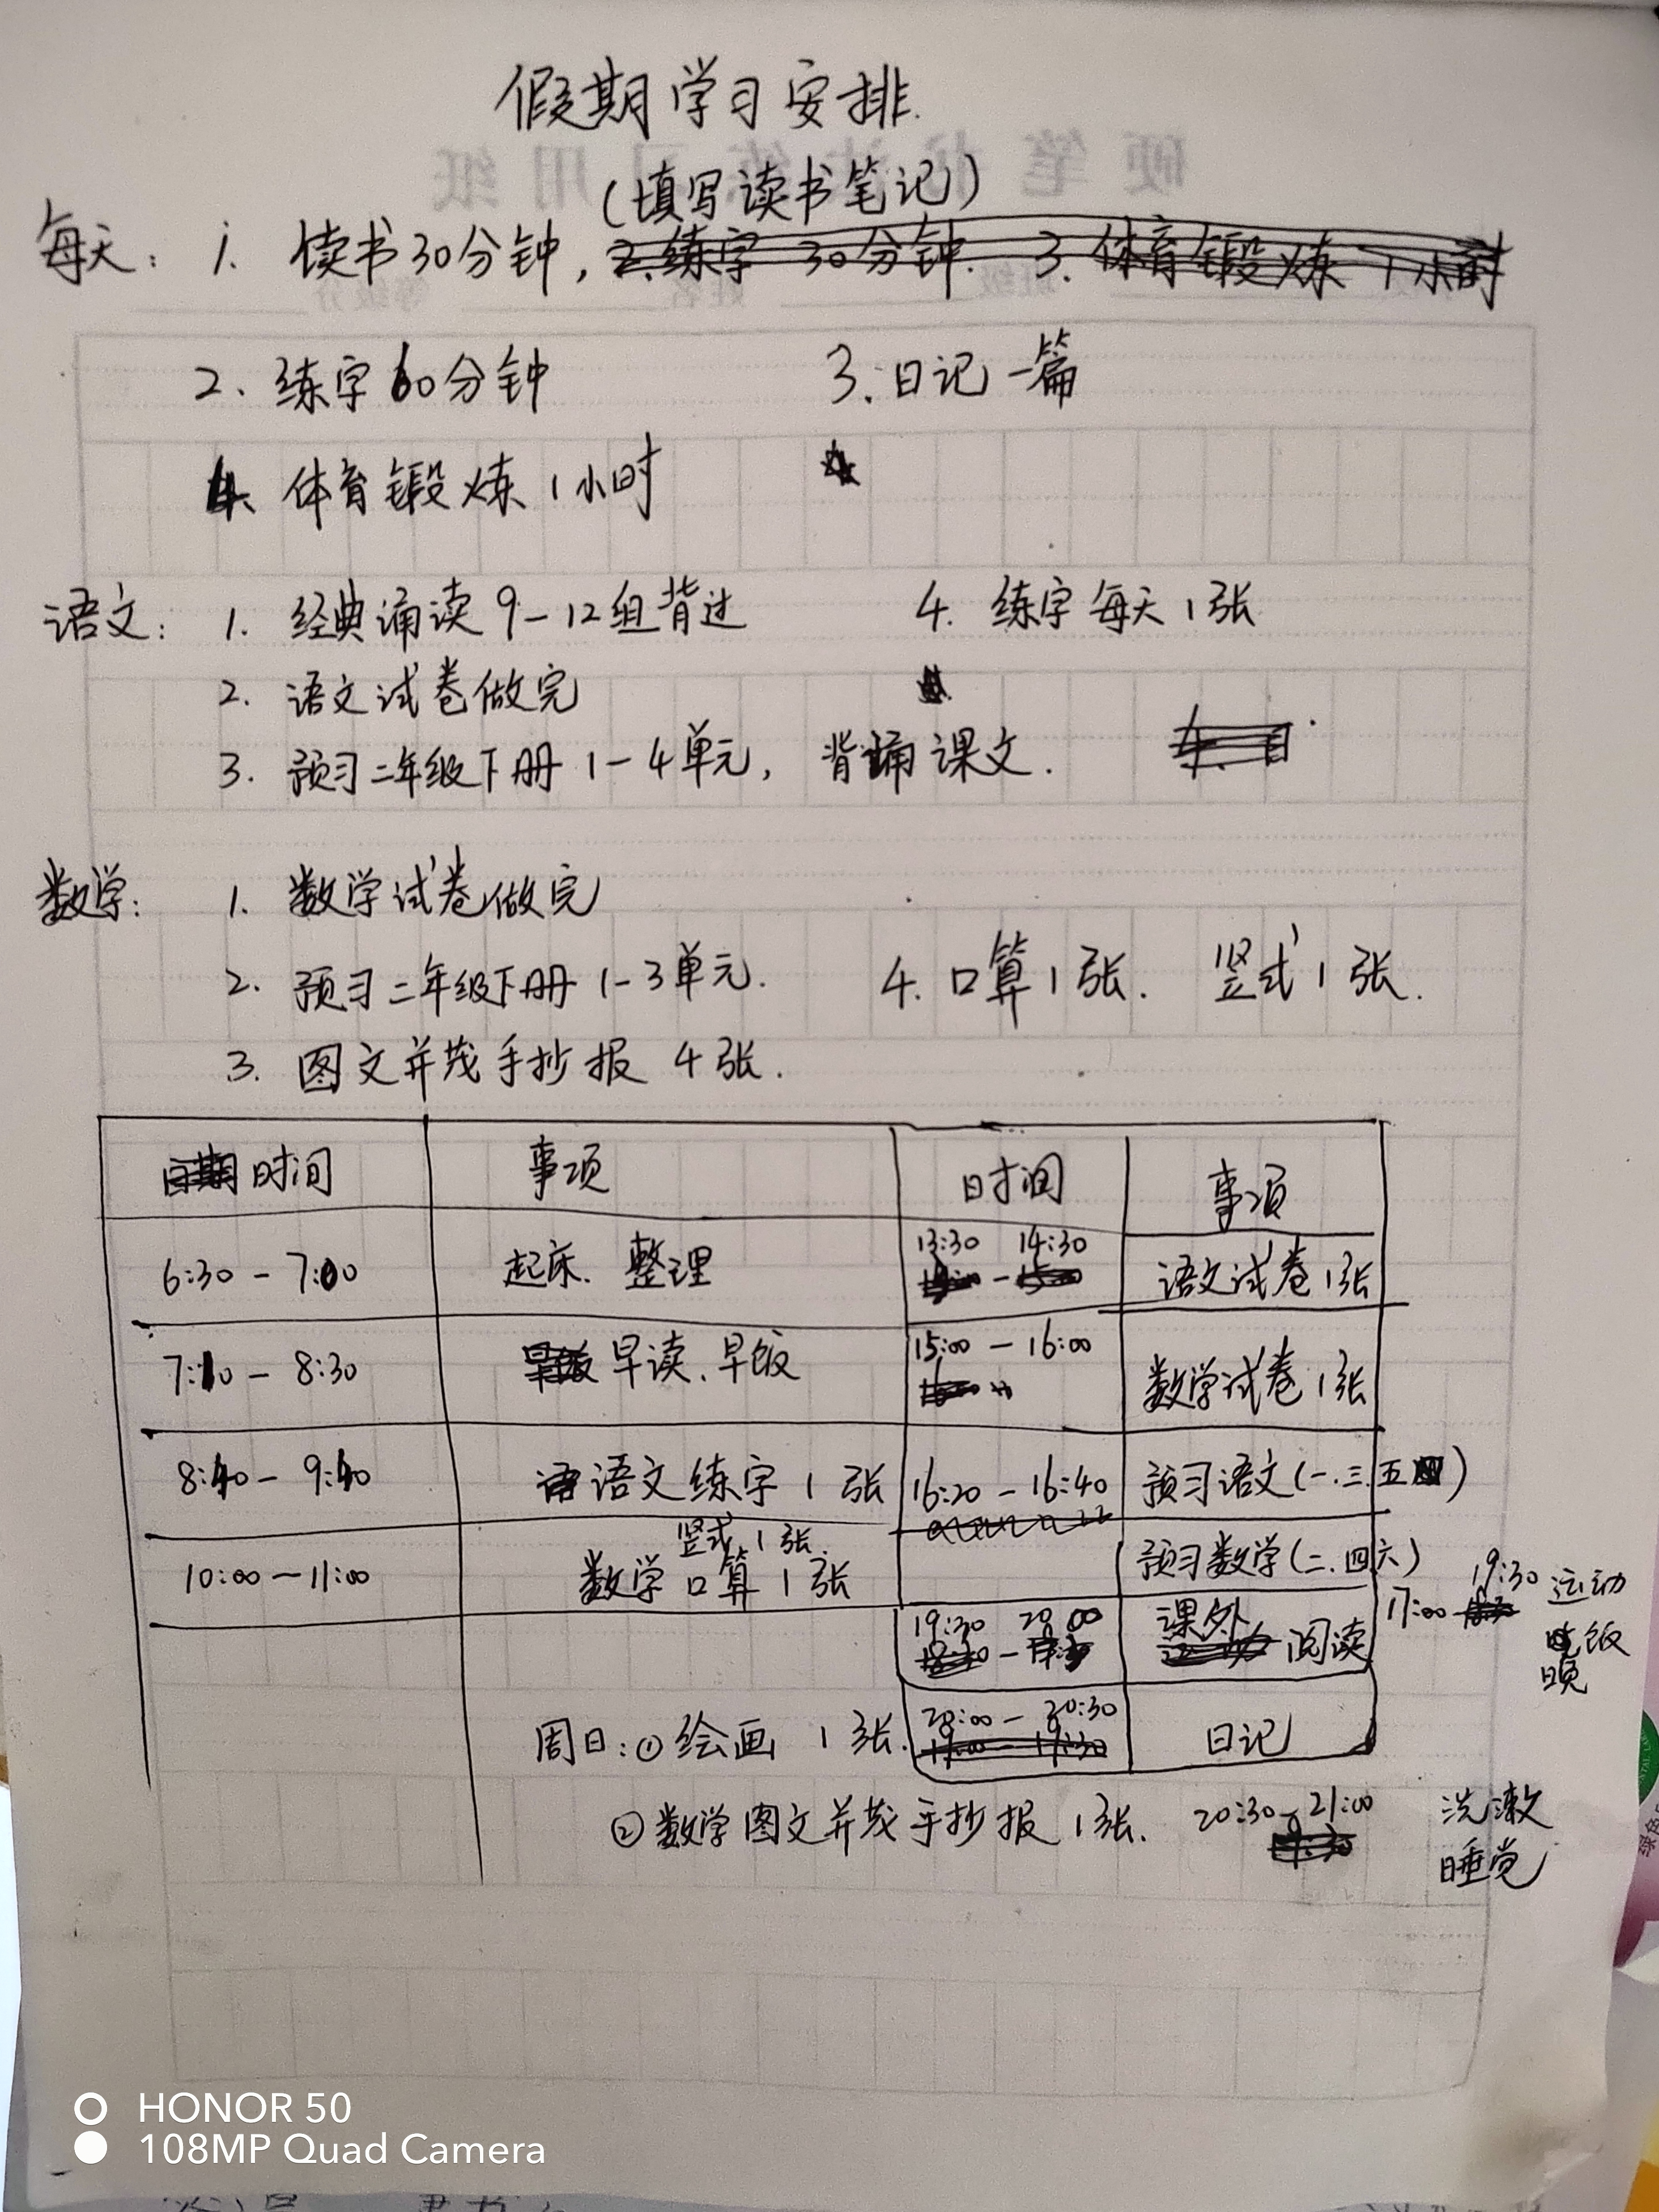 假期学习安排.
(填写读书笔记)
每天: 1. 读书30分钟, 2.练字 30分钟. 3. 体育锻炼 1小时
2. 练字60分钟 3. 日记一篇
4. 体育锻炼1小时
语文: 1. 经典诵读9-12组背过 4. 练字每天1张
2. 语文试卷做完
3. 预习二年级下册1-4单元, 背诵课文.
数学: 1. 数学试卷做完
2. 预习二年级下册1-3单元. 4. 口算1张. 竖式1张.
3. 图文并茂手抄报 4张.
日期时间 事项 时间 事项
6:30-7:00 起床. 整理 13:30 14:30 语文试卷1张
7:10-8:30 早读.早饭 15:00-16:00 数学试卷1张
8:40-9:40 语文练字1张 16:20-16:40 预习语文(一.三.五)
竖式1张.
10:00-11:00 数学口算1张 预习数学(二.四六)
19:30 20:00 课外阅读 17:00 19:30 运动
晚饭
周日:①绘画 1张. 20:00-20:30 日记
19:00-19:30
②数学图文并茂手抄报1张. 20:30-21:00 洗漱
睡觉
硬笔书法练习用纸
班级 姓名 等级分
HONOR 50
108MP Quad Camera